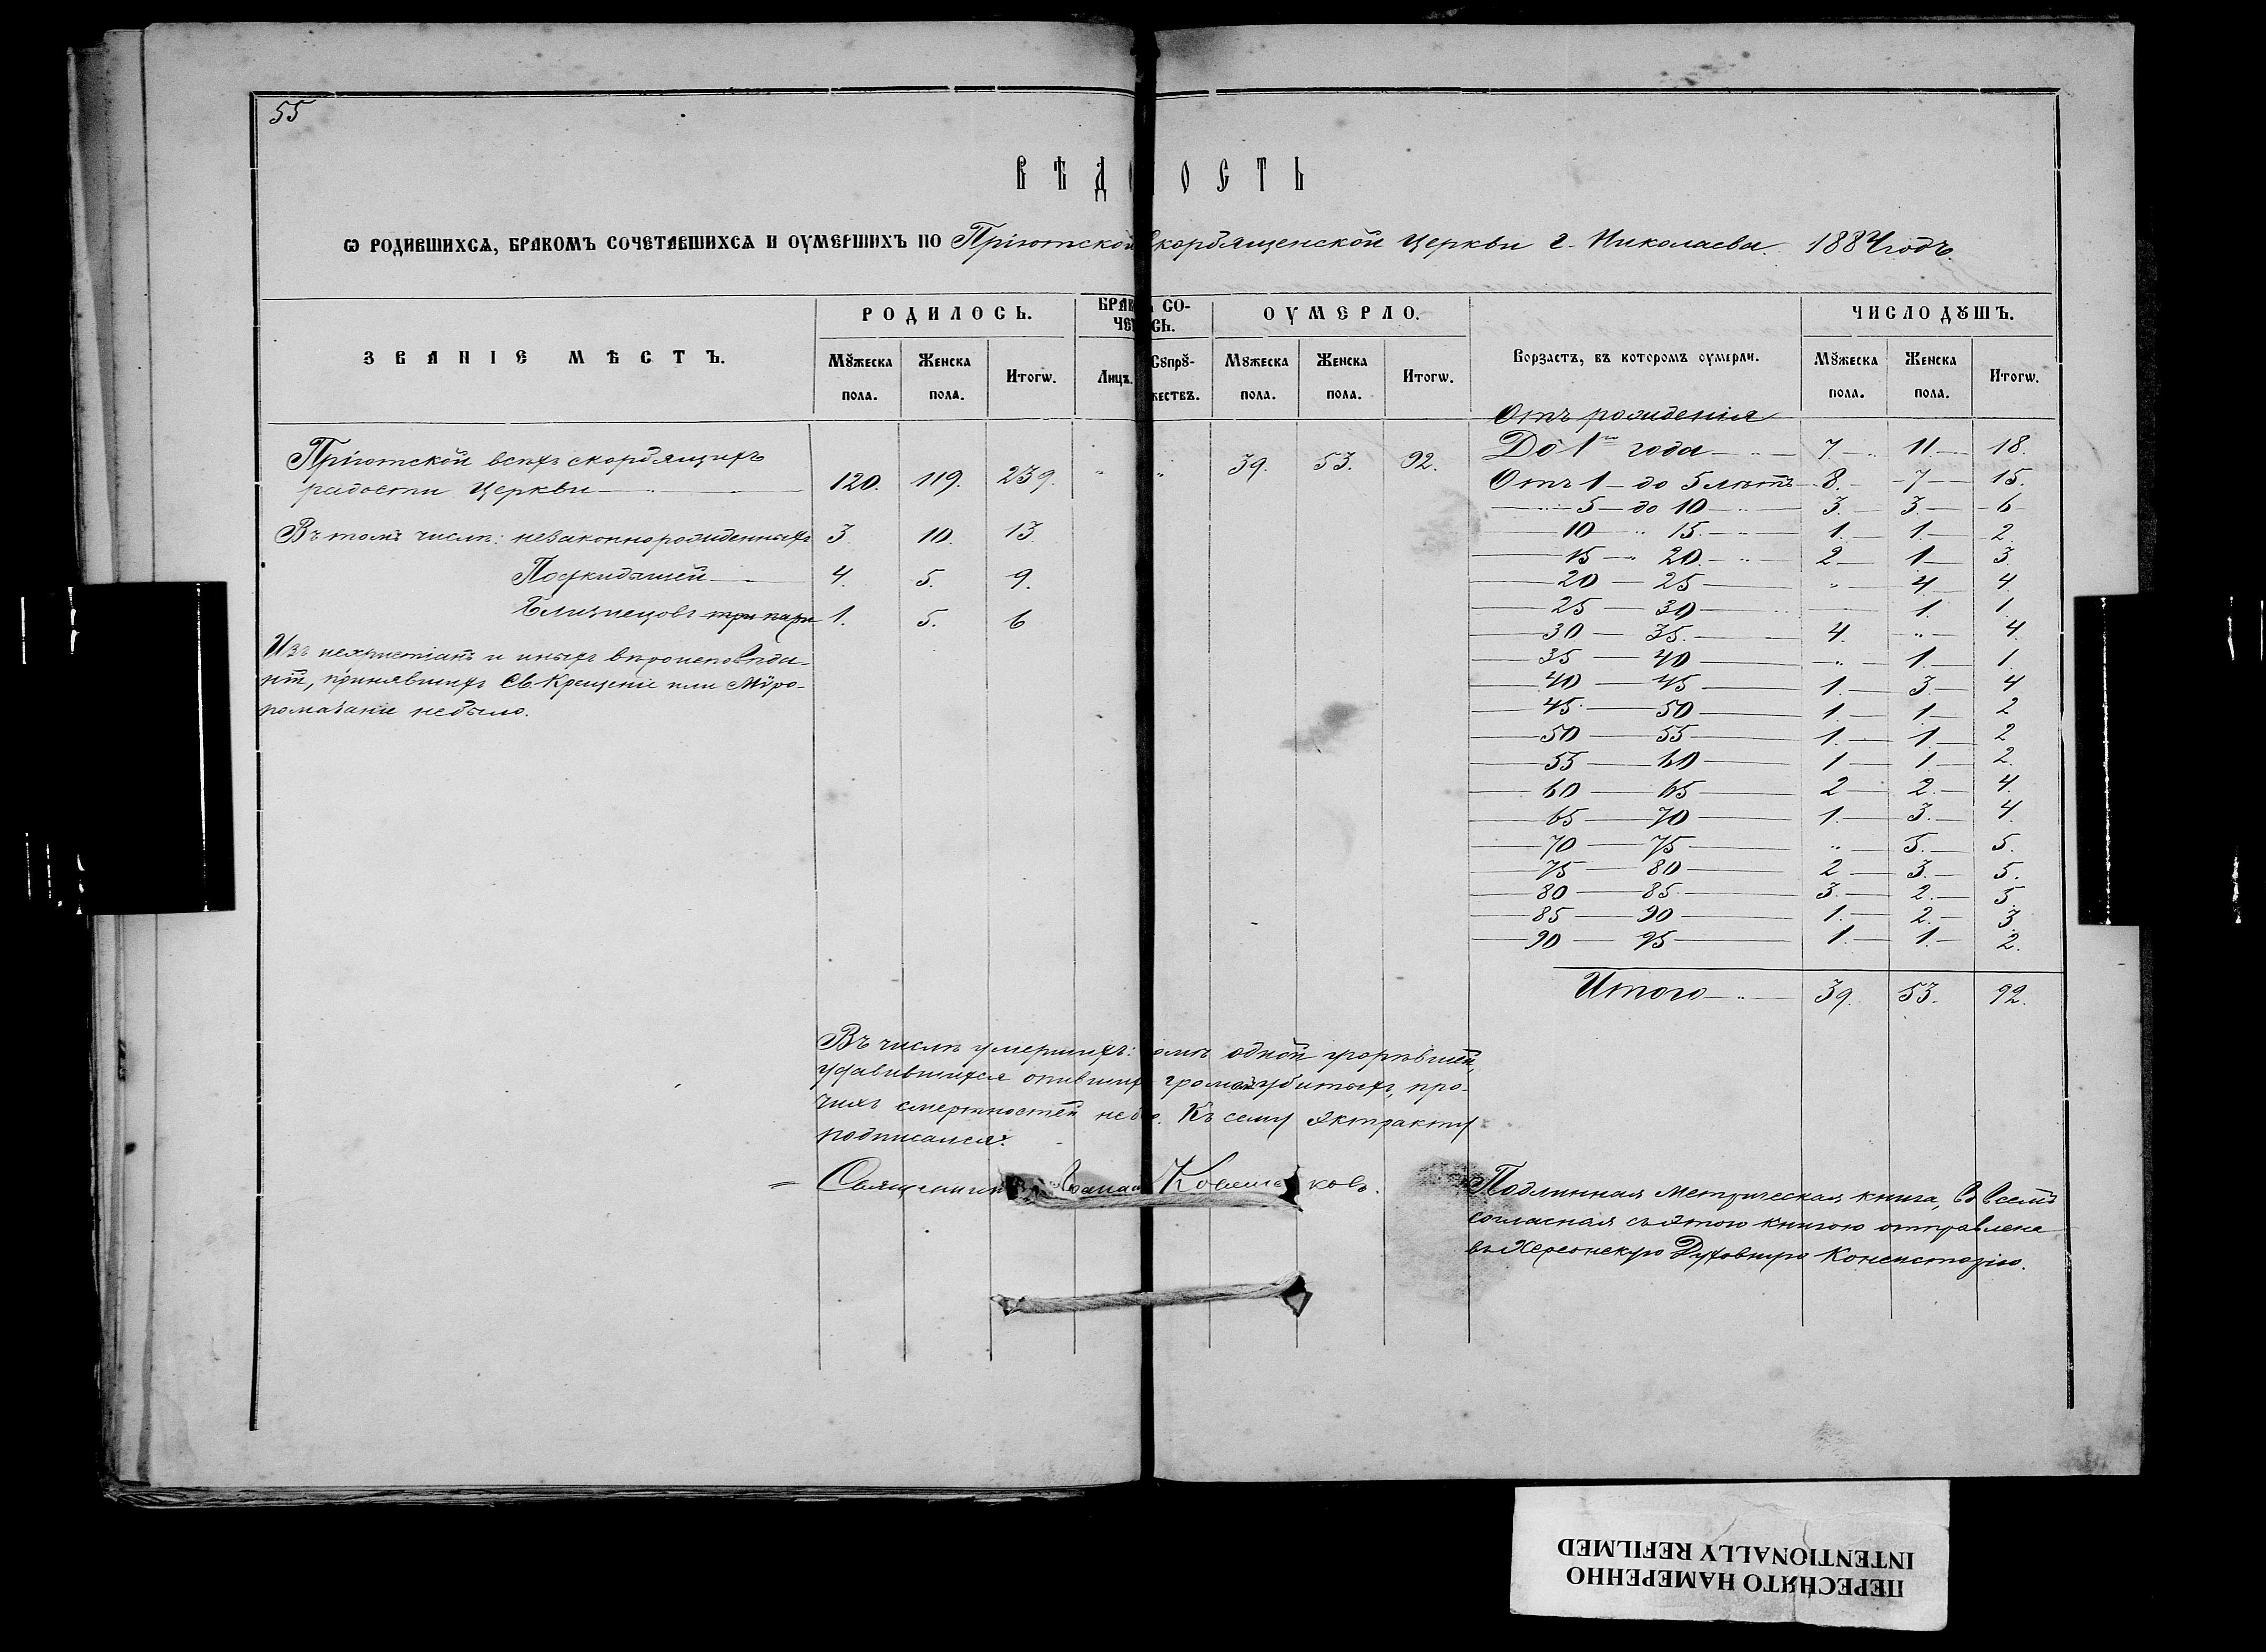 55
ВѢДОСТЬ
Ѡ РОДИВШИХСѦ, БРАКОМЪ СОЧЕТАВШИХСѦ И ОУМЕРШИХЪ ПО Пріютской Скорбященской Церкви г. Николаева. 1884 годъ.
ЗВАНІЕ МѢСТЪ.
РОДИЛОСЬ.
Мꙋжеска пола.
Женска пола.
Итогѡ.
БРАК СО-
ЧЕ СЬ.
Лицъ.
Сꙋпрꙋ-
жествъ.
ОУМЕРЛО.
Мꙋжеска пола.
Женска пола.
Итогѡ.
Ворзастъ, въ которомъ оумерли.
ЧИСЛО ДꙊШЪ.
Мꙋжеска пола.
Женска пола.
Итогѡ.
Пріютской всѣхъ скорбящихъ
радости Церкви 120. 119. 239. " " 39. 53. 92.
Въ томъ числѣ: незаконнорожденныхъ 3 10. 13.
Подкидышей 4. 5. 9.
Близнецовъ три пары 1. 5. 6
Изъ нехристіанъ и иныхъ вѣроисповѣда-
ній, принявшихъ Св. Крещеніе или Мѵро-
помазаніе небыло.
Отъ рожденія
До 1го года 7. 11 18.
Отъ 1 до 5 лѣтъ 8. 7 15.
5 до 10 3. 3. 6
10 " 15. 1. 1. 2.
15 " 20. 2 1 3.
20 25 " 4 4.
25 30 1. 1.
30 35. 4. " 4.
35 40 " 1. 1.
40 45 1. 3. 4
45 50 1. 1 2
50 55 1. 1 2.
55 60 1 1. 2.
60 65 2 2. 4.
65 70 1. 3. 4.
70 75 " 5. 5.
75 80 2 3. 5.
80 85. 3. 2. 5.
85 90 1. 2. 3.
90 95 1. 1. 2.
Итого 39. 53. 92.
Въ числѣ умершихъ: одной угорѣвшей,
удавившихся опивших громомъ убитыхъ, про-
чихъ смертностей неб Къ сему экстракту
подписался:
Священник Іоанн
Подлинная Метрическая книга, во всемъ
согласная съ этою книгою отправлена
въ Херсонскую Духовную Консисторію.
ПЕРЕСНЯТО НАМЕРЕННО
INTENTIONALLY REFILMED